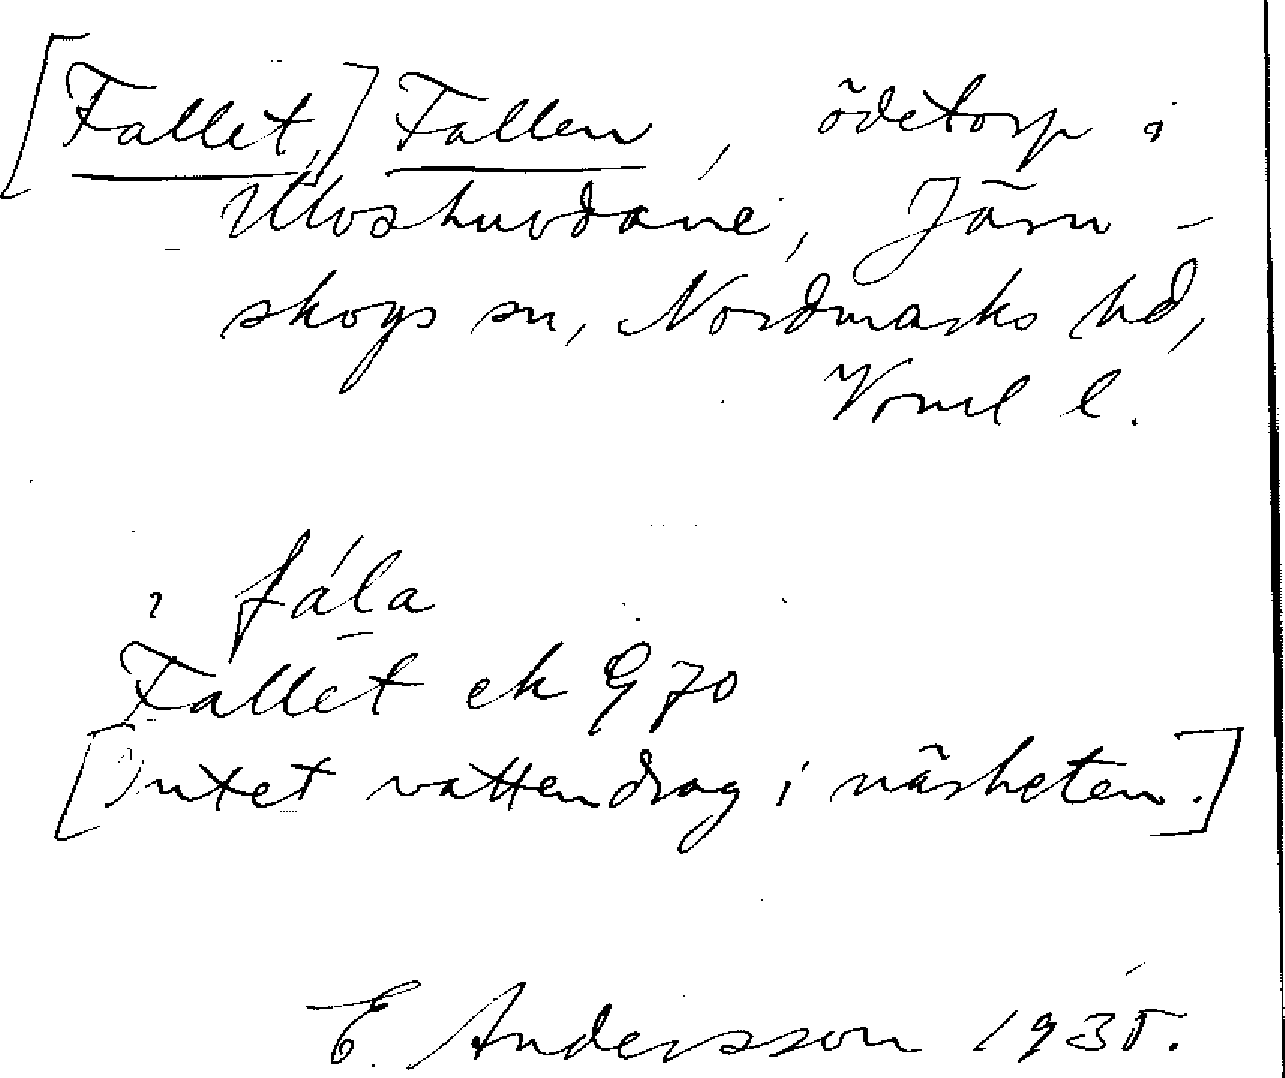 [Fallet,] Fallen, ödetorp i
Ulvshuvdane, Järn-
skogs sn, Nordmarks hd,
Vrml l.
i fála
Fallet ek G 70
[Intet vattendrag i närheten.]
E. Andersson 1935.